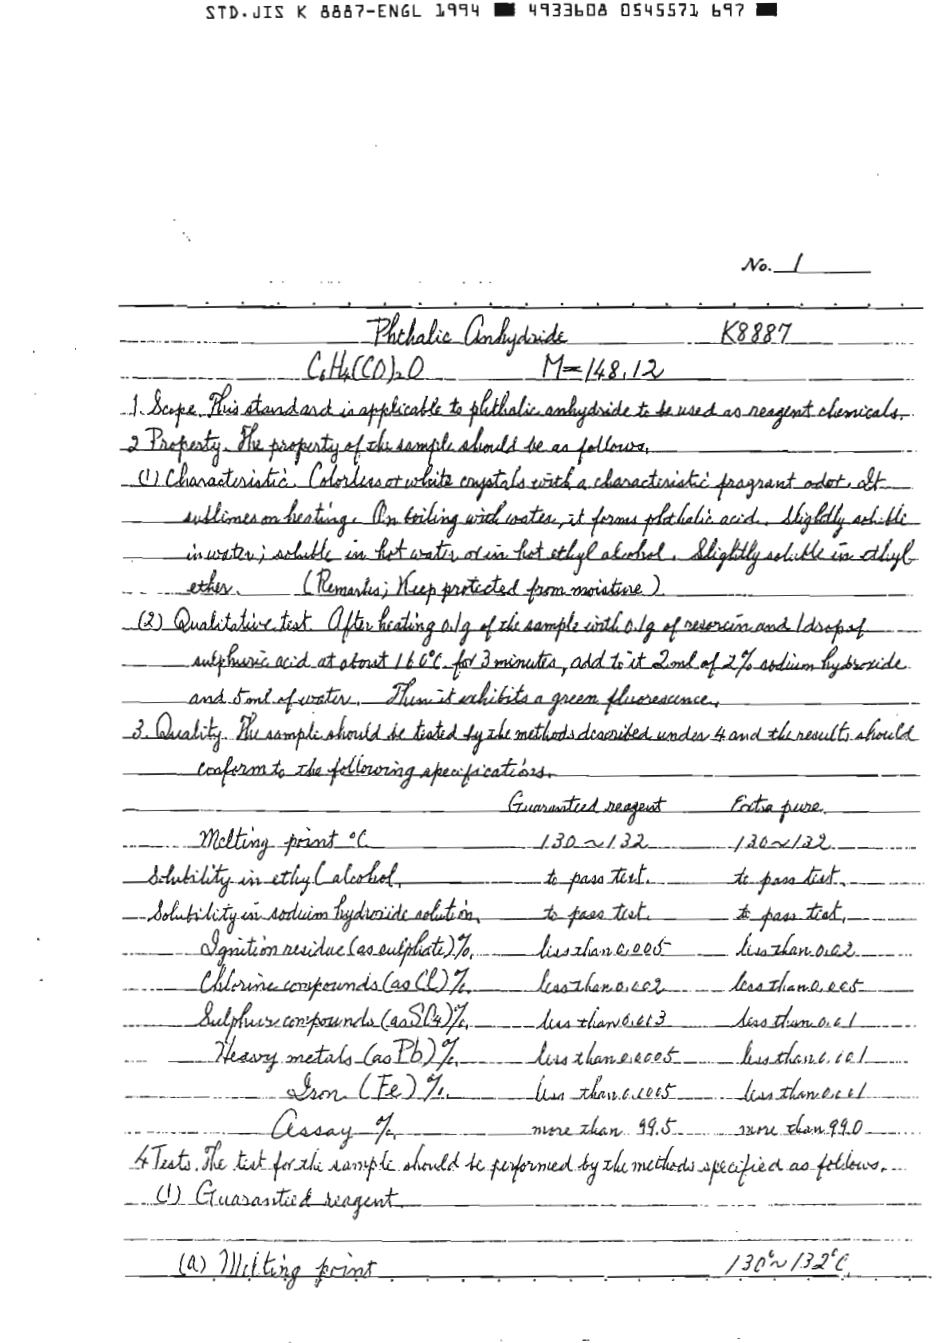 STD.JIS K 8887-ENGL 1994 ■ 4933608 0545571 697 ■
No. 1
Phthalic Anhydride K8887
C6H4(CO)2O M=148.12
1. Scope. This standard is applicable to phthalic anhydride to be used as reagent chemicals.
2 Property. The property of the sample should be as follows.
(1) Characteristic. Colorless or white crystals with a characteristic fragrant odor. It
sublimes on heating. On boiling with water, it forms phthalic acid. Slightly soluble
in water; soluble in hot water or in hot ethyl alcohol. Slightly soluble in ethyl
ether. (Remarks; Keep protected from moisture)
(2) Qualitative test. After heating 0.1g of the sample with 0.1g of resorcin and 1 drop of
sulphuric acid at about 160°C for 3 minutes, add to it 2ml of 2% sodium hydroxide
and 5ml of water. Then it exhibits a green fluorescence.
3. Quality. The sample should be tested by the methods described under 4 and the results should
conform to the following specifications.
Guaranteed reagent Extra pure.
Melting point °C 130~132 130~132
Solubility in ethyl alcohol. to pass test. to pass test.
Solubility in sodium hydroxide solution. to pass test. to pass test.
Ignition residue (as sulphate) %. less than 0.005 less than 0.02
Chlorine compounds (as Cl) %. less than 0.002 less than 0.005
Sulphur compounds (as SO4) %. less than 0.003 less than 0.01
Heavy metals (as Pb) %. less than 0.0005 less than 0.001
Iron (Fe) %. less than 0.0005 less than 0.001
Assay %. more than 99.5 more than 99.0
4 Tests. The test for the sample should be performed by the methods specified as follows.
(1) Guaranteed reagent
(a) Melting point 130°~132°C.